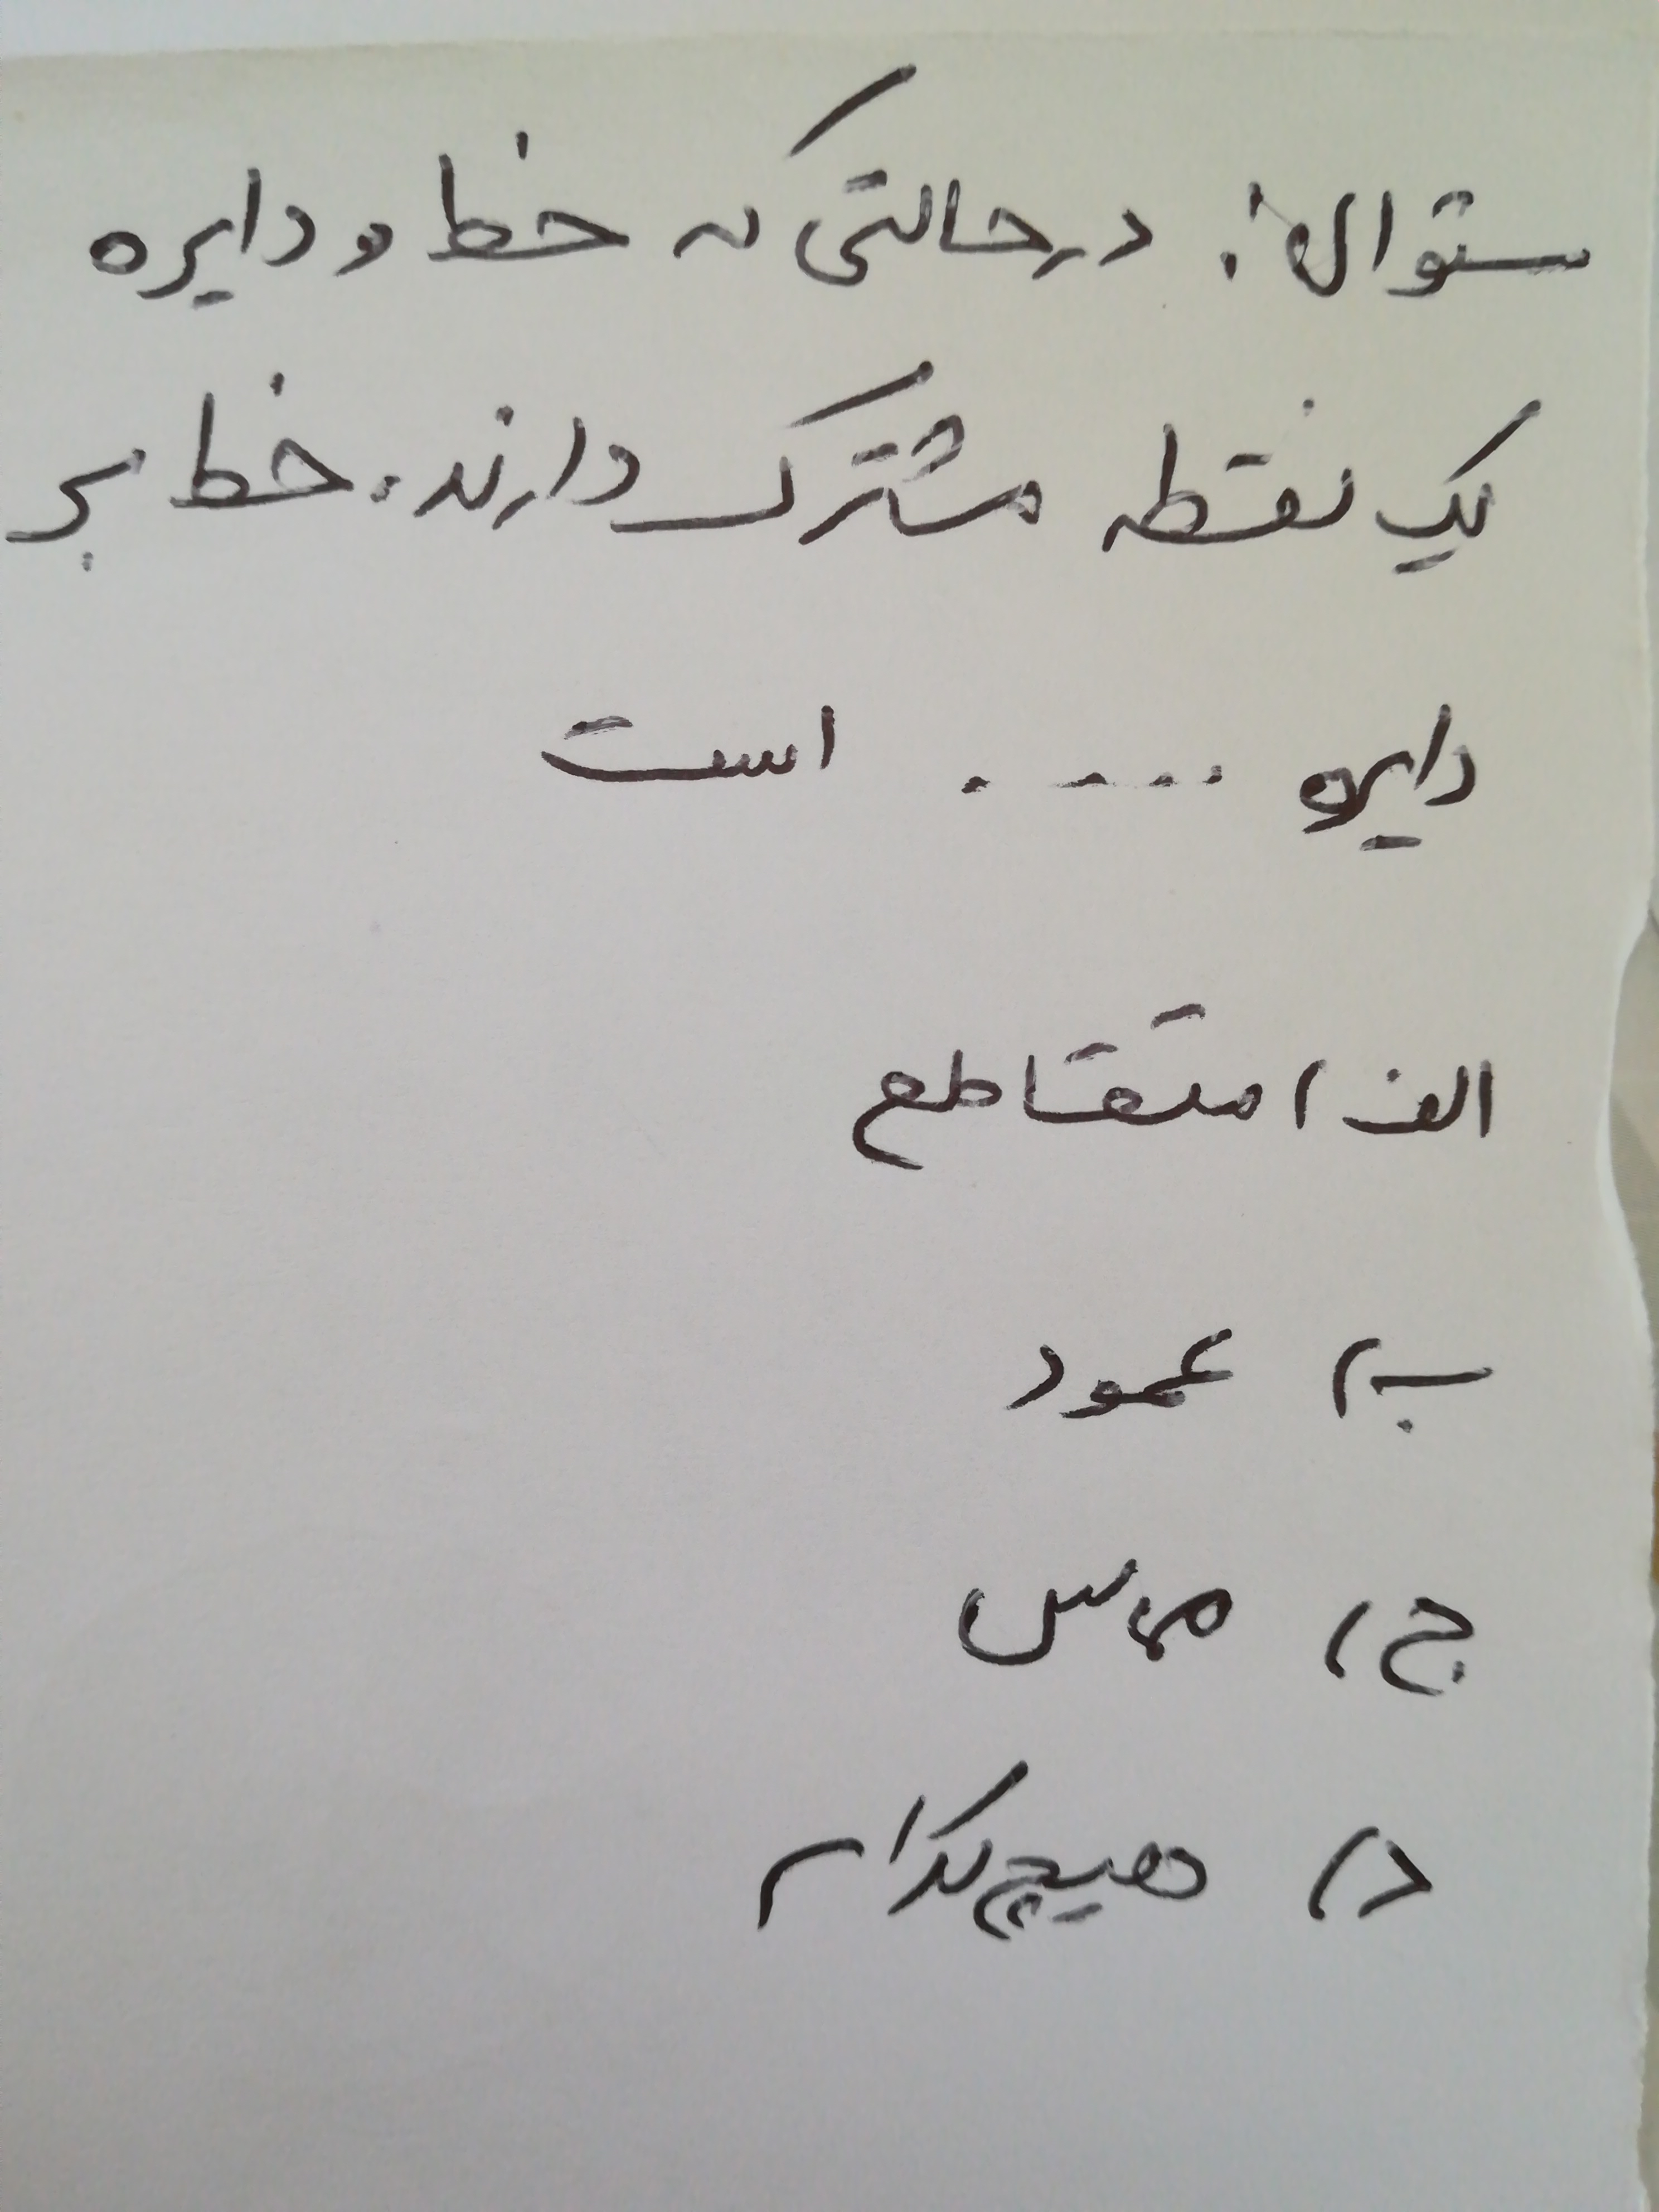 سئوال: در حالتی که خط و دایره
یک نقطه مشترک دارند. خط بر
دایره ..... است
الف) متقاطع
ب) عمود
ج) مماس
د) هیچکدام